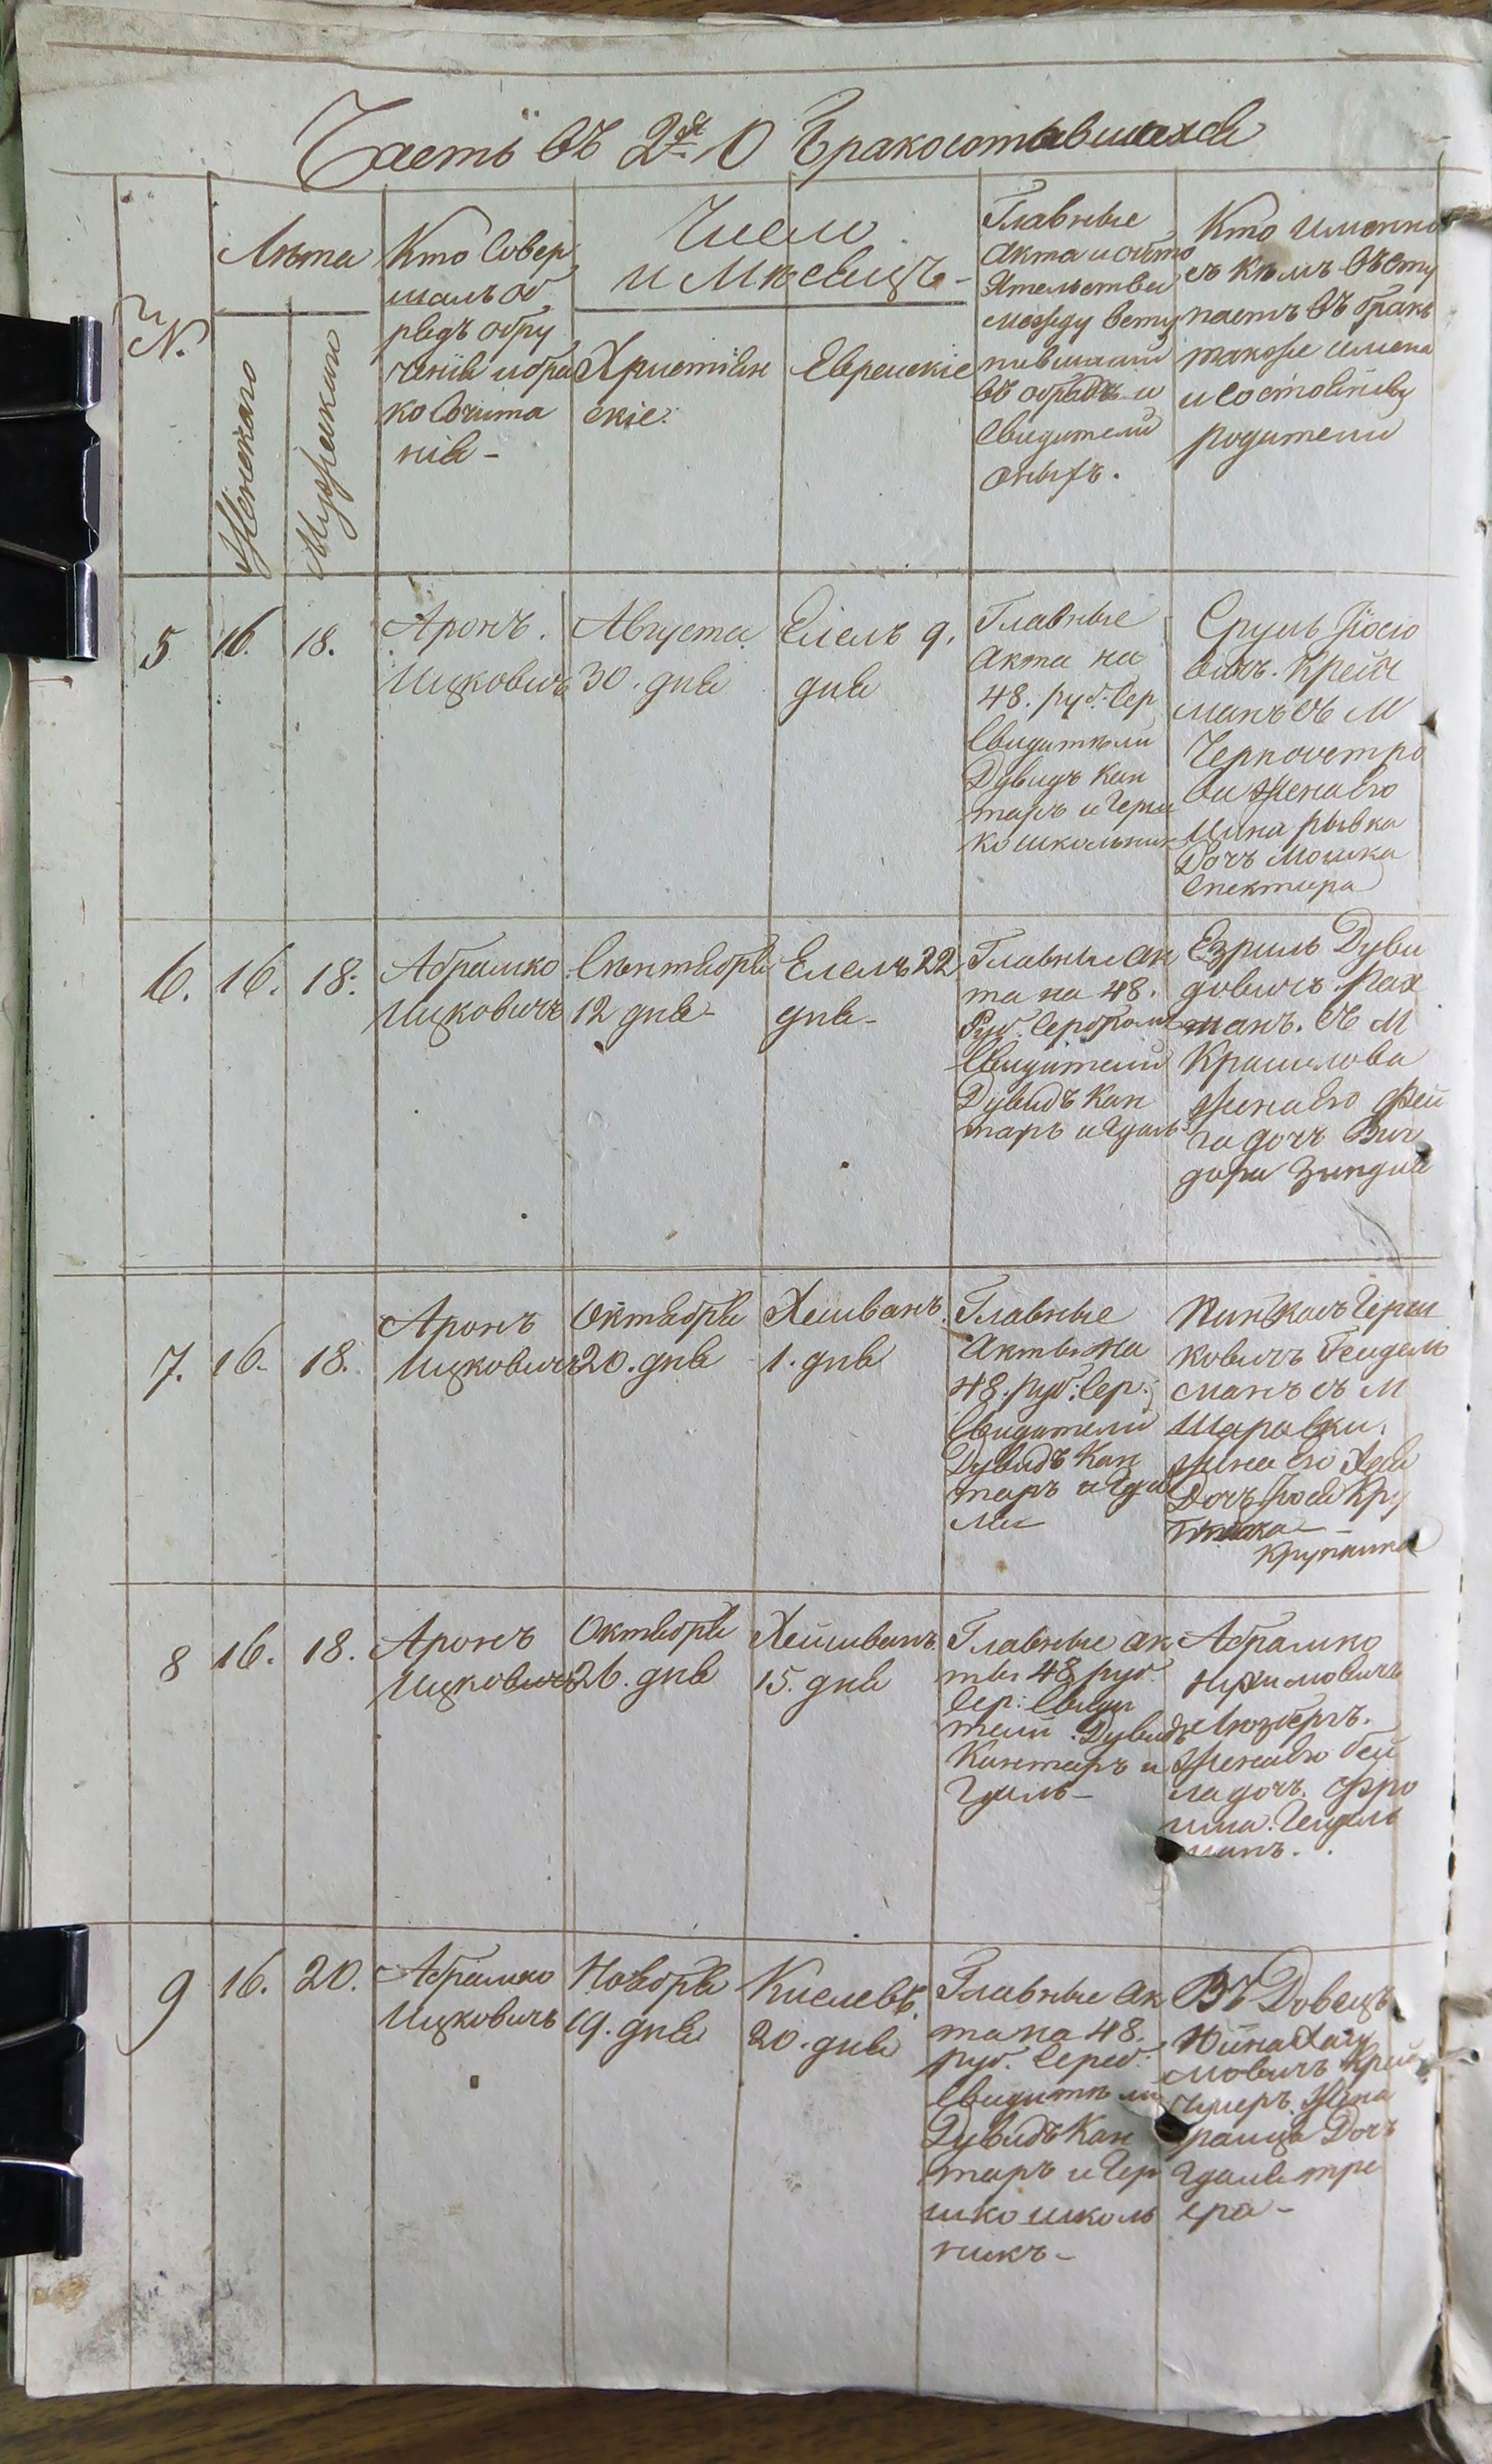 Часть въ 2я О Бракосотавшихся
№.
Лѣта
Женскаго
Мужескаго
Кто Совер
шалъ об
рядъ обру
ченія и бра
ко Сочита
нія -
Число
и Мѣсяцъ -
Христіян
скіе.
Евреискіе
Главные
Акта и обяз
ятельствы
между всту
пившими
въ обрядъ и
Свидители
оныхъ.
Кто именно
съ кѣмъ всту
паетъ въ бракъ
также имена
и Состоянія
родители
5
16.
18.
Аронъ.
Ицковичъ
Августа
30. дня
Елелъ 9.
дня
Главные
Акта на
48. руб. Сер
Свидители
Дувидъ Кан
таръ и Герш
ко школьник
Сруль Іосіо
вичъ. Крейч
манъ съ М
Черноостро
ва жена Его
рывка
Дочь Мошка
Спектира
6.
16.
18.
Абрамко
Ицковичъ
Сѣнтября
12 дня -
Елелъ 22
дня -
Главные ак
та на 48.
Руб. Серебром
Свидители
Дувидъ Кан
таръ и Гдаль
Езриль Дуви
довичъ. Рах
манъ. съ М
Красилова
жена Его Фей
га дочь Виг
дора
7.
16.
18.
Аронъ
Ицковичъ
Октября
20. дня
Хешванъ.
1. дня
Главные
Акты на
48. руб. Сер.
Свидители
Дувидъ Кан
таръ и Гда
ль
Пинкасъ Герш
ковичъ Гендель
манъ съ М
Шаровки.
жена Его Хая
Дочь Іося Кру
Крупника
8
16.
18.
Аронъ
Ицковичъ
Октября
26. дня
Хешванъ.
15. дня
Главные ак
ты 48 руб.
Сер: Свиди
тели. Дувидъ
Кантаръ и
Гдаль -
Абрамко
Нухимовичъ
Люзбергъ.
Жена Его Бей
ла дочь. Фро
има. Гендель
манъ.
9
16.
20.
Абрамко
Ицковичъ
Ноября
19. дня
Кислевъ.
20. дня
Главные ак
та на 48.
руб. Сереб.
Свидитѣли
Дувидъ Кан
таръ и Гер
шко школь
никъ -
Вдовецъ
Хаи
мовичъ Край
чмеръ. Жена
Дочь
Гдаля тре
ера -